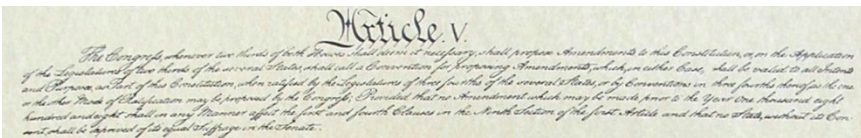 Article. V.
The Congress, whenever two thirds of both Houses shall deem it necessary, shall propose Amendments to this Constitution, or, on the Application
of the Legislatures of two thirds of the several States, shall call a Convention for proposing Amendments, which, in either Case, shall be valid to all Intents
and Purposes, as Part of this Constitution, when ratified by the Legislatures of three fourths of the several States, or by Conventions in three fourths thereof, as the one
or the other Mode of Ratification may be proposed by the Congress; Provided that no Amendment which may be made prior to the Year One thousand eight
hundred and eight shall in any Manner affect the first and fourth Clauses in the Ninth Section of the first Article; and that no State, without its Con-
sent, shall be deprived of its equal Suffrage in the Senate.